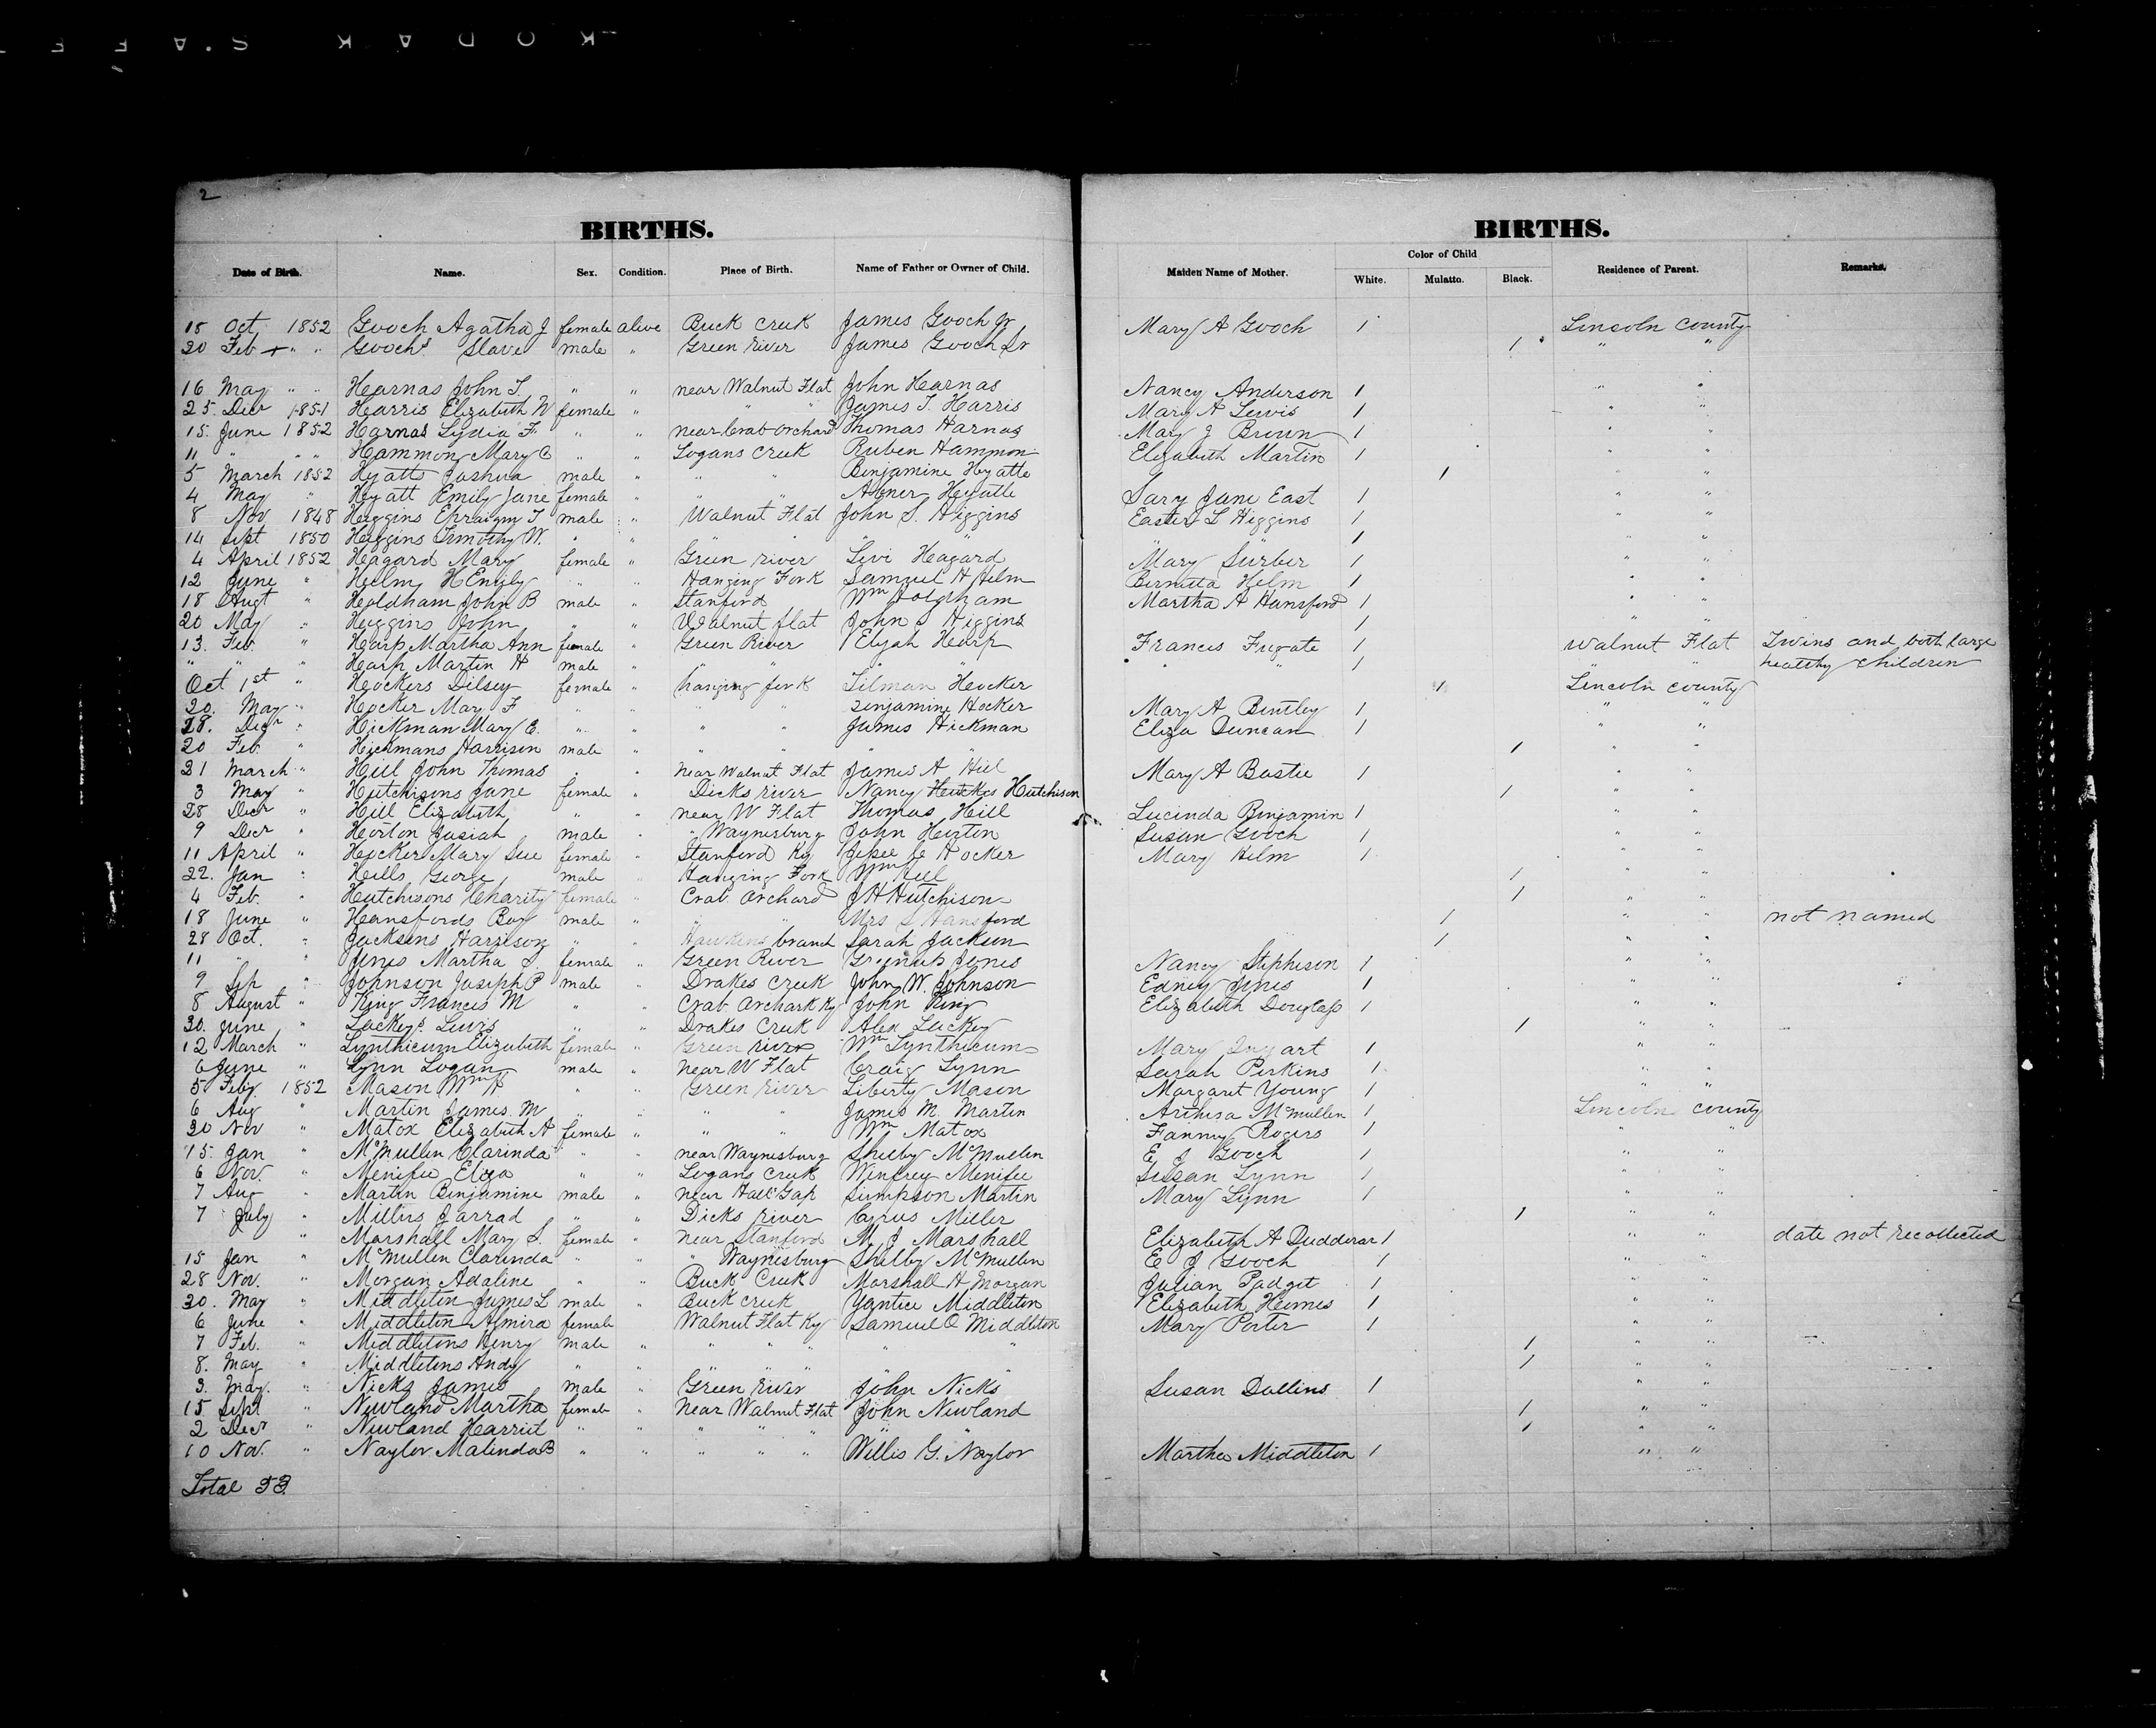 KODAK S.A F E
2
BIRTHS. BIRTHS.
Date of Birth. Name. Sex. Condition. Place of Birth. Name of Father or Owner of Child. Maiden Name of Mother. Color of Child White. Mulatto. Black. Residence of Parent. Remarks.
15 Oct 1852 Gooch Agatha J female alive Buck Creek James Gooch Jr Mary A Gooch 1 Lincoln County
20 Feb + " " Gooch's Slave male " Green river James Gooch Sr 1 " "
16 May " " Hearnas John T. " " near Walnut Flat John Hearnas Nancy Anderson 1 " "
25. Decr 1851 Harris Elizabeth W female " " " James T. Harris Mary A Lewis 1 " "
15. June 1852 Harnas Lydia F. " " near Crab Orchard Thomas Harnas Mary J Brown 1 " "
11 " " " Hammon Mary C " " Logans Creek Ruben Hammon Elizabeth Martin 1 " "
5 March 1852 Hyatts Joshua male " " " Benjamine Hyatte 1 " "
4 May " Hyatt Emily Jane female " " " Abner Hyatte Sary Jane East 1 " "
8 Nov 1848 Higgins Ephraigm T male " Walnut Flat John S. Higgins Easter L Higgins 1 " "
14 Sept 1850 Higgins Timothy W. " " " " " 1 " "
4 April 1852 Hagard Mary female " Green river Levi Hagard Mary Surber 1 " "
12 June " Helm H Emily " " Hanging Fork Samuel H Helm Bernetta Helm 1 " "
18 Augt " Holdham John B male " Stanford Wm Holdham Martha A Hansford 1 " "
20 May " Higgins John " " Walnut flat John S Higgins 1 " "
13. Feb. " Harp Martha Ann female " Green River Elijah Harp Francis Fugate 1 Walnut Flat Twins and both large
" " " Harp Martin H male " " " " " 1 " " healthy children
Oct 1st " Hockers Dilsey female " hanging fork Tilman Hocker 1 Lincoln county
20. May " Hocker Mary F " " " " Benjamine Hocker Mary A Bentley 1 " "
28. Decr " Hickman Mary E. " " " " James Hickman Eliza Duncan 1 " "
20 Feb. " Hickmans Harrison male " " " " " 1 " "
21 March " Hill John Thomas " " near Walnut Flat James A Hill Mary A Bastie 1 " "
3 May " Hutchisons Jane female " Dicks river Nancy Hutchison 1 " "
28 Decr " Hill Elizabeth " " near W Flat Thomas Hill Lucinda Benjamin 1 " "
9 Decr " Horton Josiah male " " Waynesburg John Horton Susan Gooch 1 " "
11 April " Hocker Mary Sue female " Stanford Ky Jesse C Hocker Mary Helm 1 " "
22. Jan " Hills George male " Hanging Fork Wm Hill 1 " "
4 Feb. " Hutchisons Charity female " Crab Orchard J H Hutchison 1 " "
18 June " Hansfords Boy male " " " Mrs S Hansford 1 " " not named
28 Oct. " Jacksons Harrison " " Hawkins branch Sarah Jackson 1 " "
11 " " Jones Martha S female " Green River Greenub Jones Nancy Stephison 1 " "
9 Sep " Johnson Joseph P male " Drakes Creek John W. Johnson Edney Jones 1 " "
8 August " King Francis M " " Crab Orchark Ky John King Elizabeth Douglass 1 " "
30. June " Lackeys Lewis " " Drakes Creek Alex Lackey 1 " "
12 March " Lynthicum Elizabeth female " Green river Wm Lynthicum Mary 1 " "
6 June " Lynn Logan male " near W Flat Craig Lynn Sarah Perkins 1 " "
5 Feby 1852 Mason Wm " " Green river Liberty Mason Margaret Young 1 " "
6 Aug " Martin James M " " " " James M. Martin McMullen 1 Lincoln county
20 Nov " Matox Elizabeth A female " " " Wm Matox Fanny Rogers 1 " "
15. Jan " McMullen Clarinda " " near Waynesburg Shelby McMullen E J Gooch 1 " "
6 Nov. " Menifee Eliza " " Logans Creek Winfrey Menifee Susan Lynn 1 " "
7 Aug " Martin Benjamine male " near Halls Gap Simpson Martin Mary Lynn 1 " "
7 July " Millers Jarrad " " Dicks river Cyrus Miller 1 " "
" Marshall Mary S. female " near Stanford M. J Marshall Elizabeth A Dudderar 1 " " date not recollected
15 Jan " McMullen Clarinda " " " Waynesburg Shelby McMullen E J Gooch 1 " "
28 Nov. " Morgan Adaline " " Buck Creek Marshall H Morgan Julian Padget 1 " "
30. May " Middleton James L male " Buck creek Yantice Middleton Elizabeth Homes 1 " "
6 June " Middleton Almira female " Walnut Flat Ky Samuel O Middleton Mary Porter 1 " "
7 Feb. " Middletons Henry male " " " " " " 1 " "
8. May " Middletons Andy " " " " " " " 1 " "
3. May. " Nicks James male " Green river John Nicks Susan Dollins 1 " "
15 Sept " Newland Martha female " Near Walnut Flat John Newland 1 " "
2 Decr " Newland Harriet " " " " " " " 1 " "
10 Nov. " Naylor Malinda B " " " " " Willis G. Naylor Martha Middleton 1 " "
Total 53